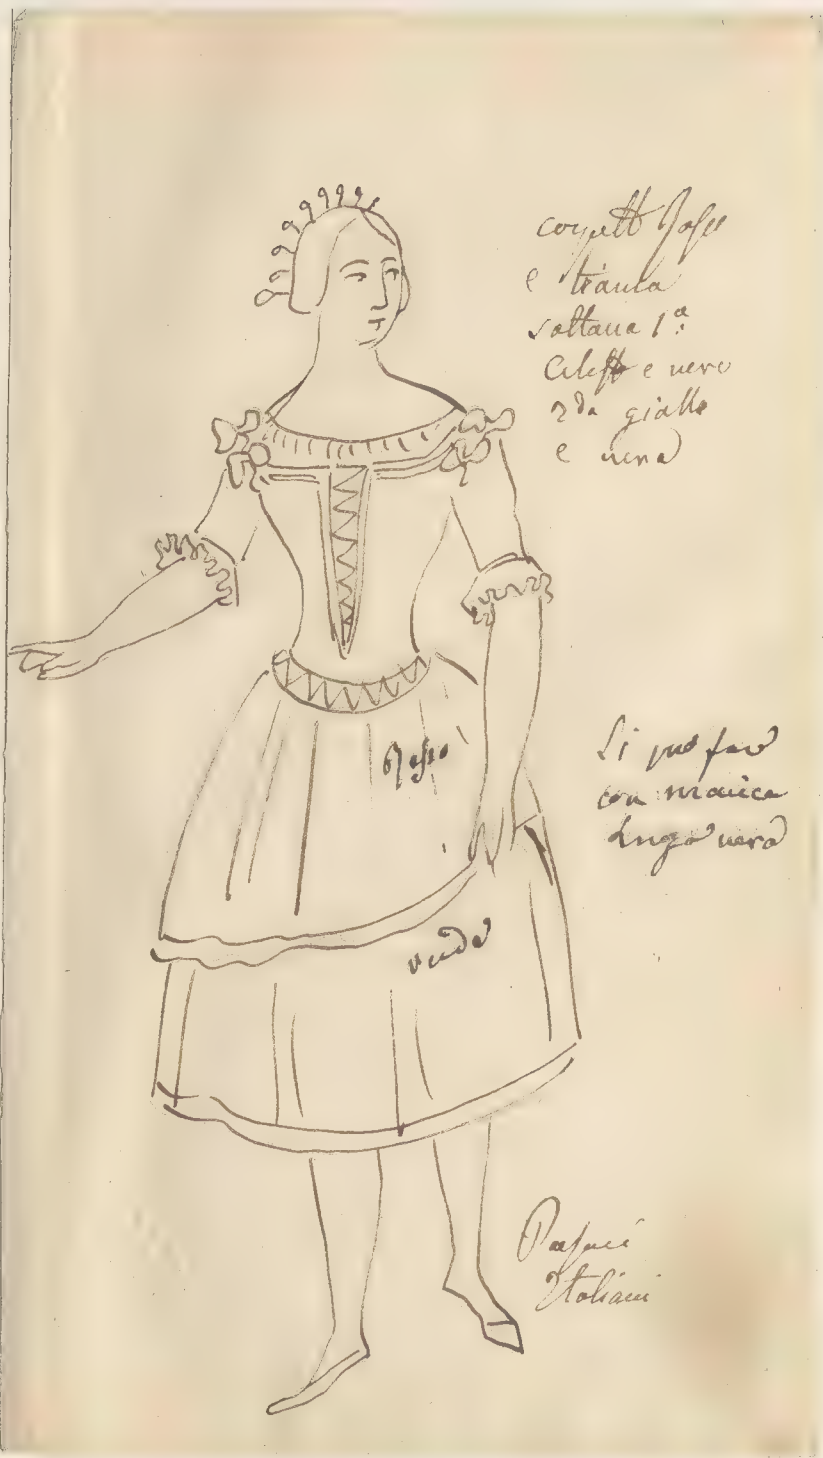 corpetto Rosso
e bianca
sottana 1ª
Celeste e nero
2da gialla
e nera
Rosso
Si può fare
con manica
lunga nera
verde
Italiani